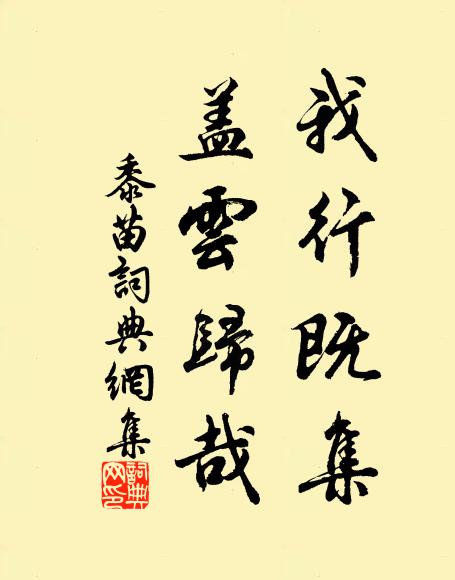 我行既集
盖雲歸哉
黍苗詞典網集
詞典網印